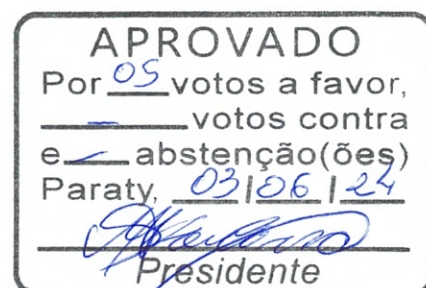 APROVADO
Por 05 votos a favor,
— votos contra
e — abstenção(ões)
Paraty, 03/06/24
Presidente